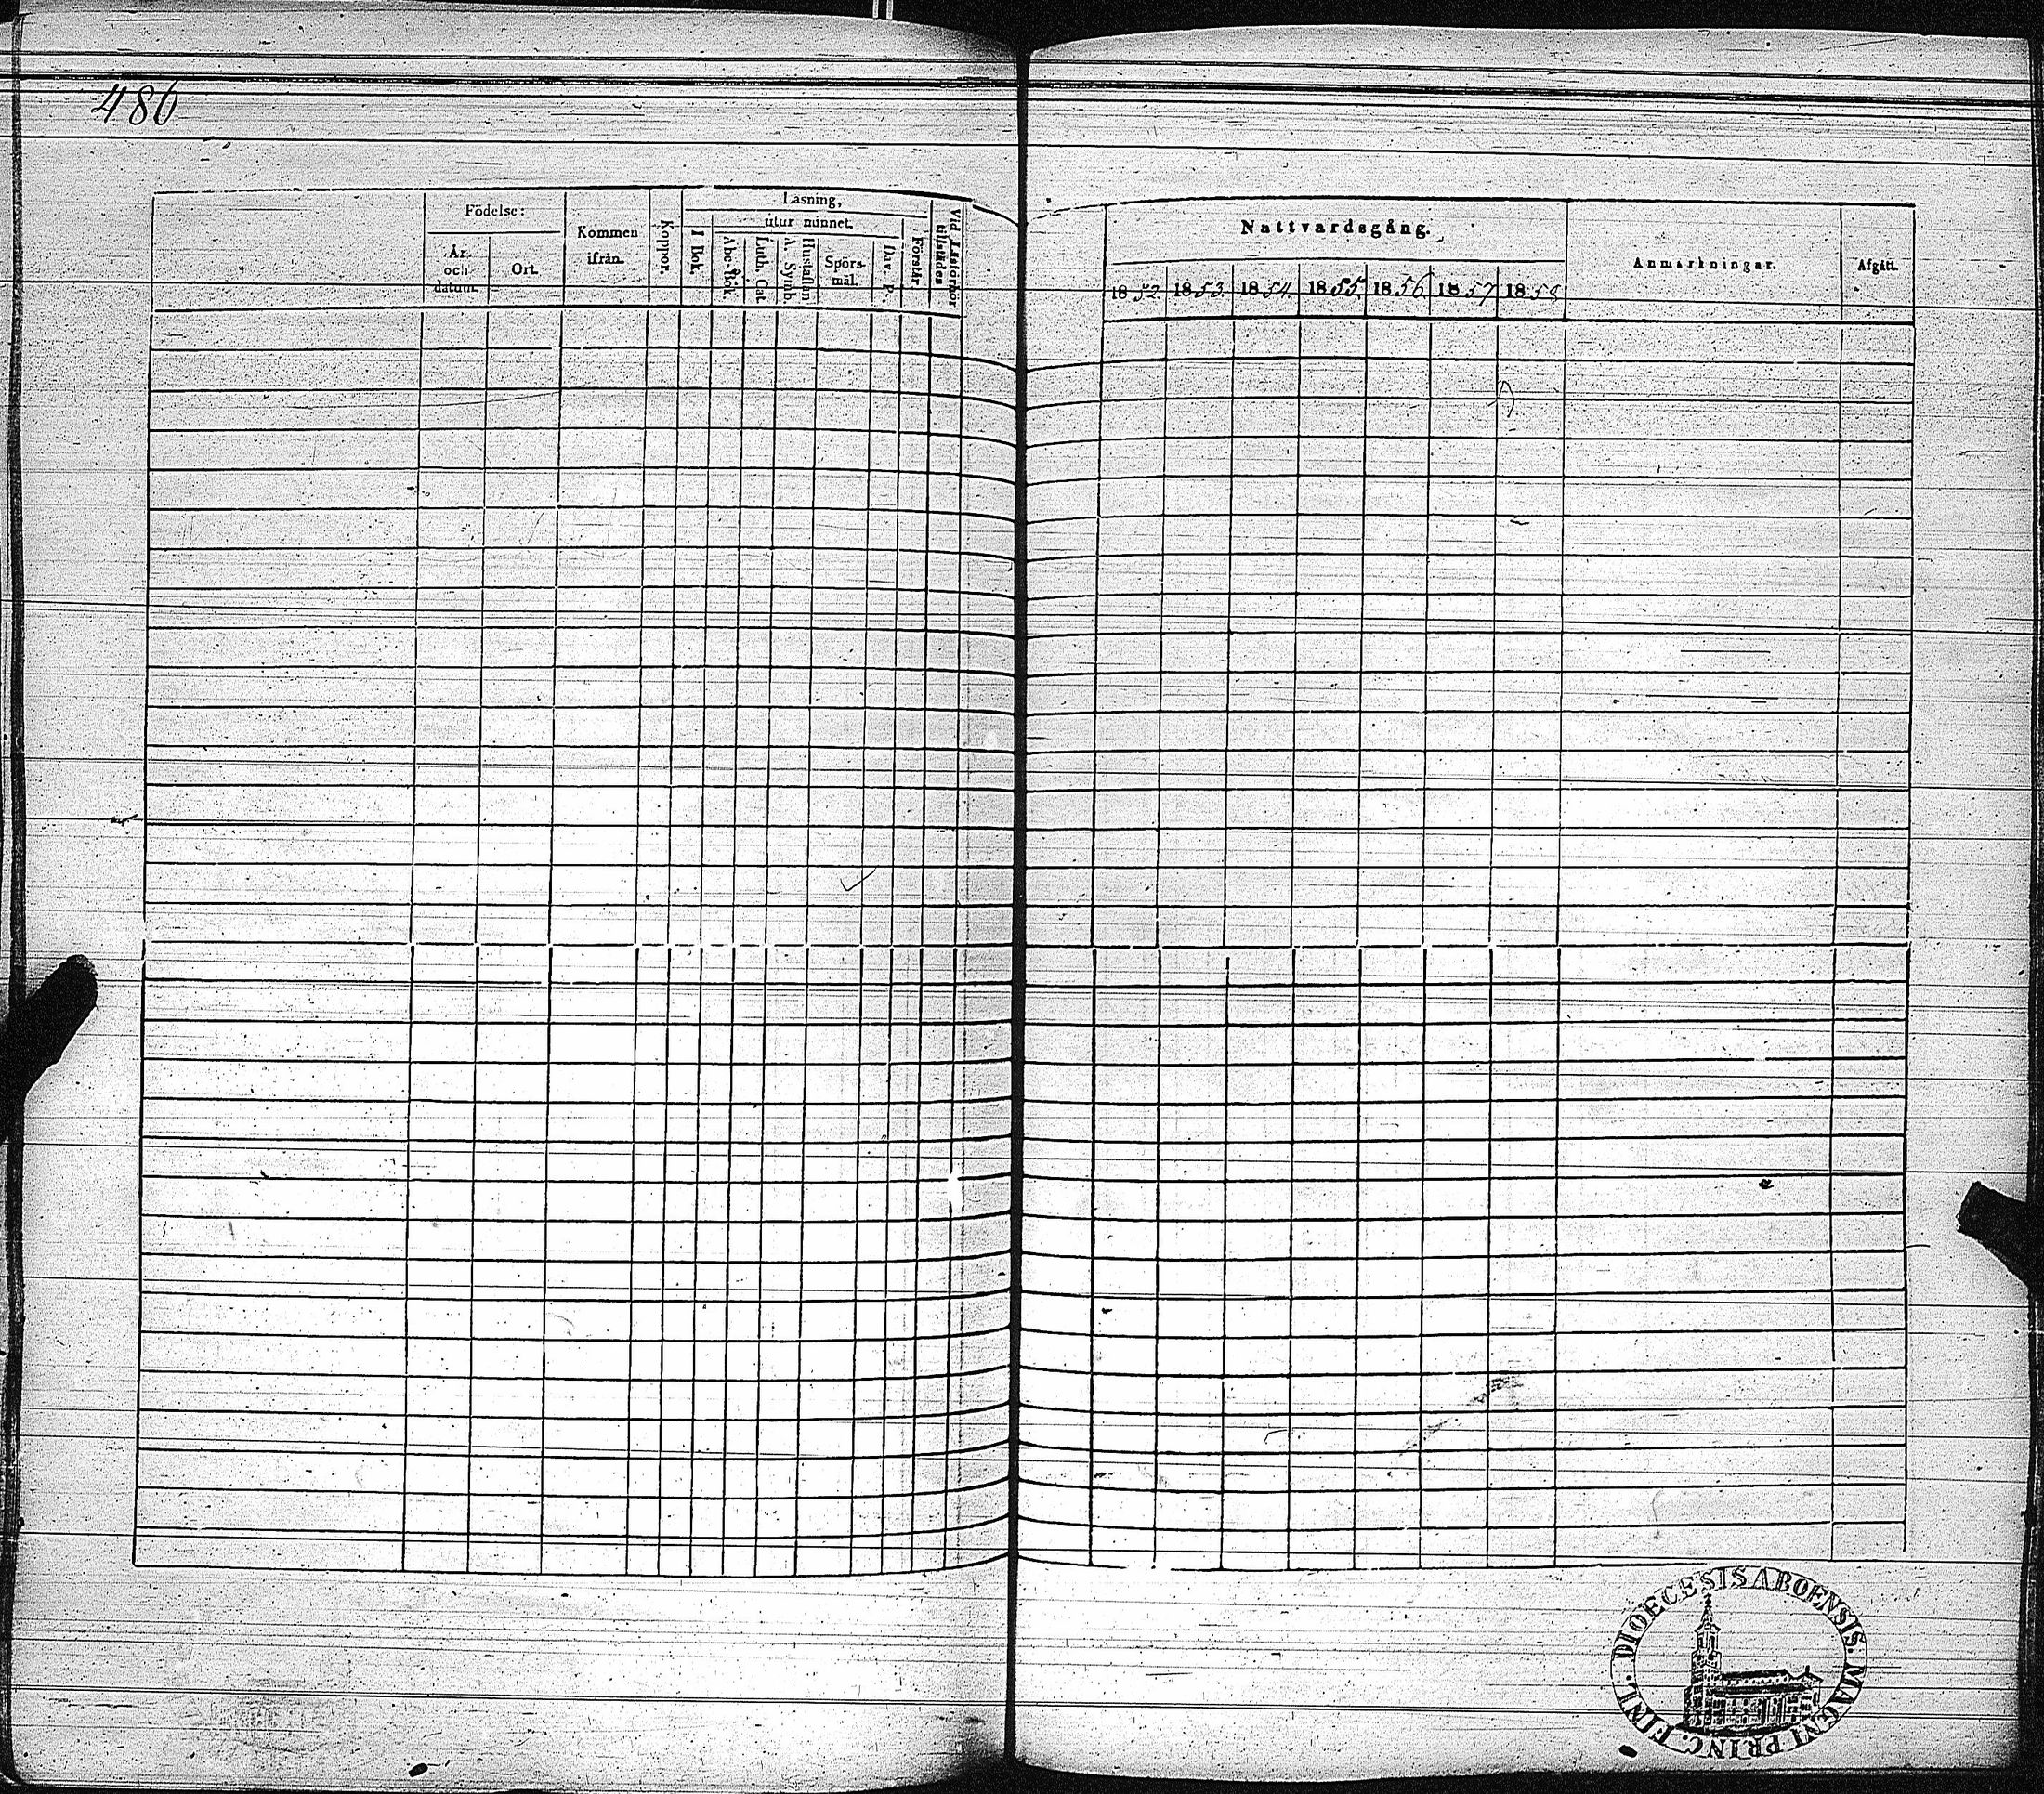 486
Födelse:
År och datum.
Ort.
Kommen ifrån.
Koppor.
Läsning,
I Bok.
utur minnet.
Abc-Bok.
Luth. Cat.
A. Symb.
Hustaflan
Spörs-mål.
Dav. P.
Förstår.
Vid Läsförhör tillstädes
Nattvardsgång.
1852. 1853. 1854. 1855. 1856. 1857 1858
Anmärkningar.
Afgått.
DIOECESIS ABOENSIS. MAGNI PRINC. FINL.